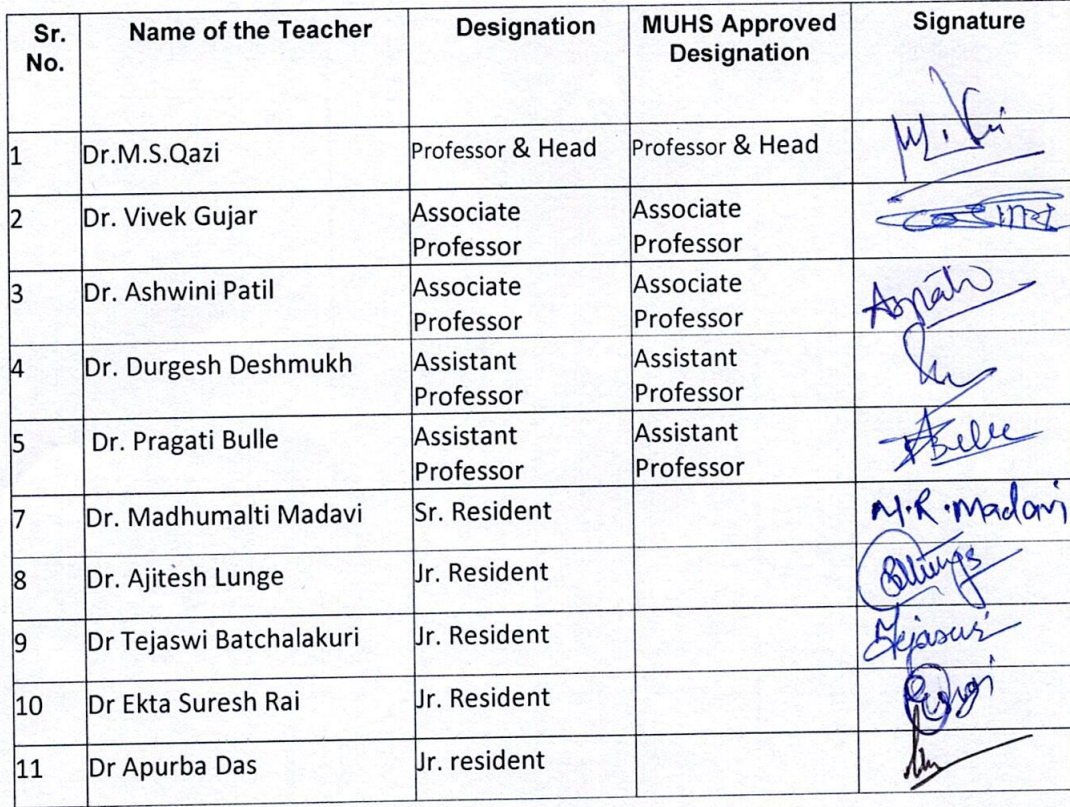 Sr. No. Name of the Teacher Designation MUHS Approved Designation Signature
1 Dr.M.S.Qazi Professor & Head Professor & Head
2 Dr. Vivek Gujar Associate Professor Associate Professor
3 Dr. Ashwini Patil Associate Professor Associate Professor
4 Dr. Durgesh Deshmukh Assistant Professor Assistant Professor
5 Dr. Pragati Bulle Assistant Professor Assistant Professor
7 Dr. Madhumalti Madavi Sr. Resident M.R.Madavi
8 Dr. Ajitesh Lunge Jr. Resident
9 Dr Tejaswi Batchalakuri Jr. Resident Tejaswi
10 Dr Ekta Suresh Rai Jr. Resident
11 Dr Apurba Das Jr. resident